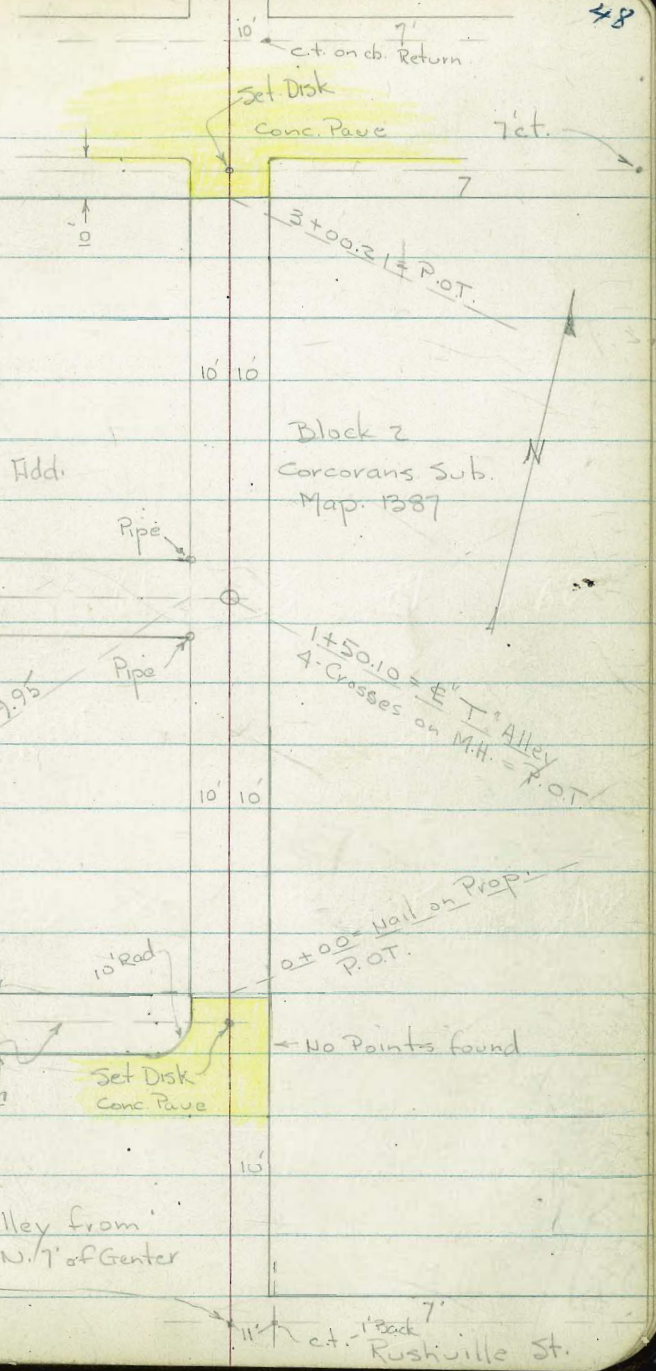 48
10' 7'
c.t. on cb. Return
Set Disk
Conc. Pave
7' ct.
7
10'
3+00.21 = P.O.T.
10' 10'
Block 2
Corcorans Sub.
Map. 1387
Add.
Pipe
N
Pipe
1+50.10 = ℄ "T" Alley
4-Crosses on M.H. = P.O.T
9.95
10' 10'
0+00 = Nail on Prop.
P.O.T.
10' Rad
No Points found
Set Disk
Conc Pave
10'
lley from
N. 7' of Genter
7'
11' c.t. - 1' Back
Rushville St.